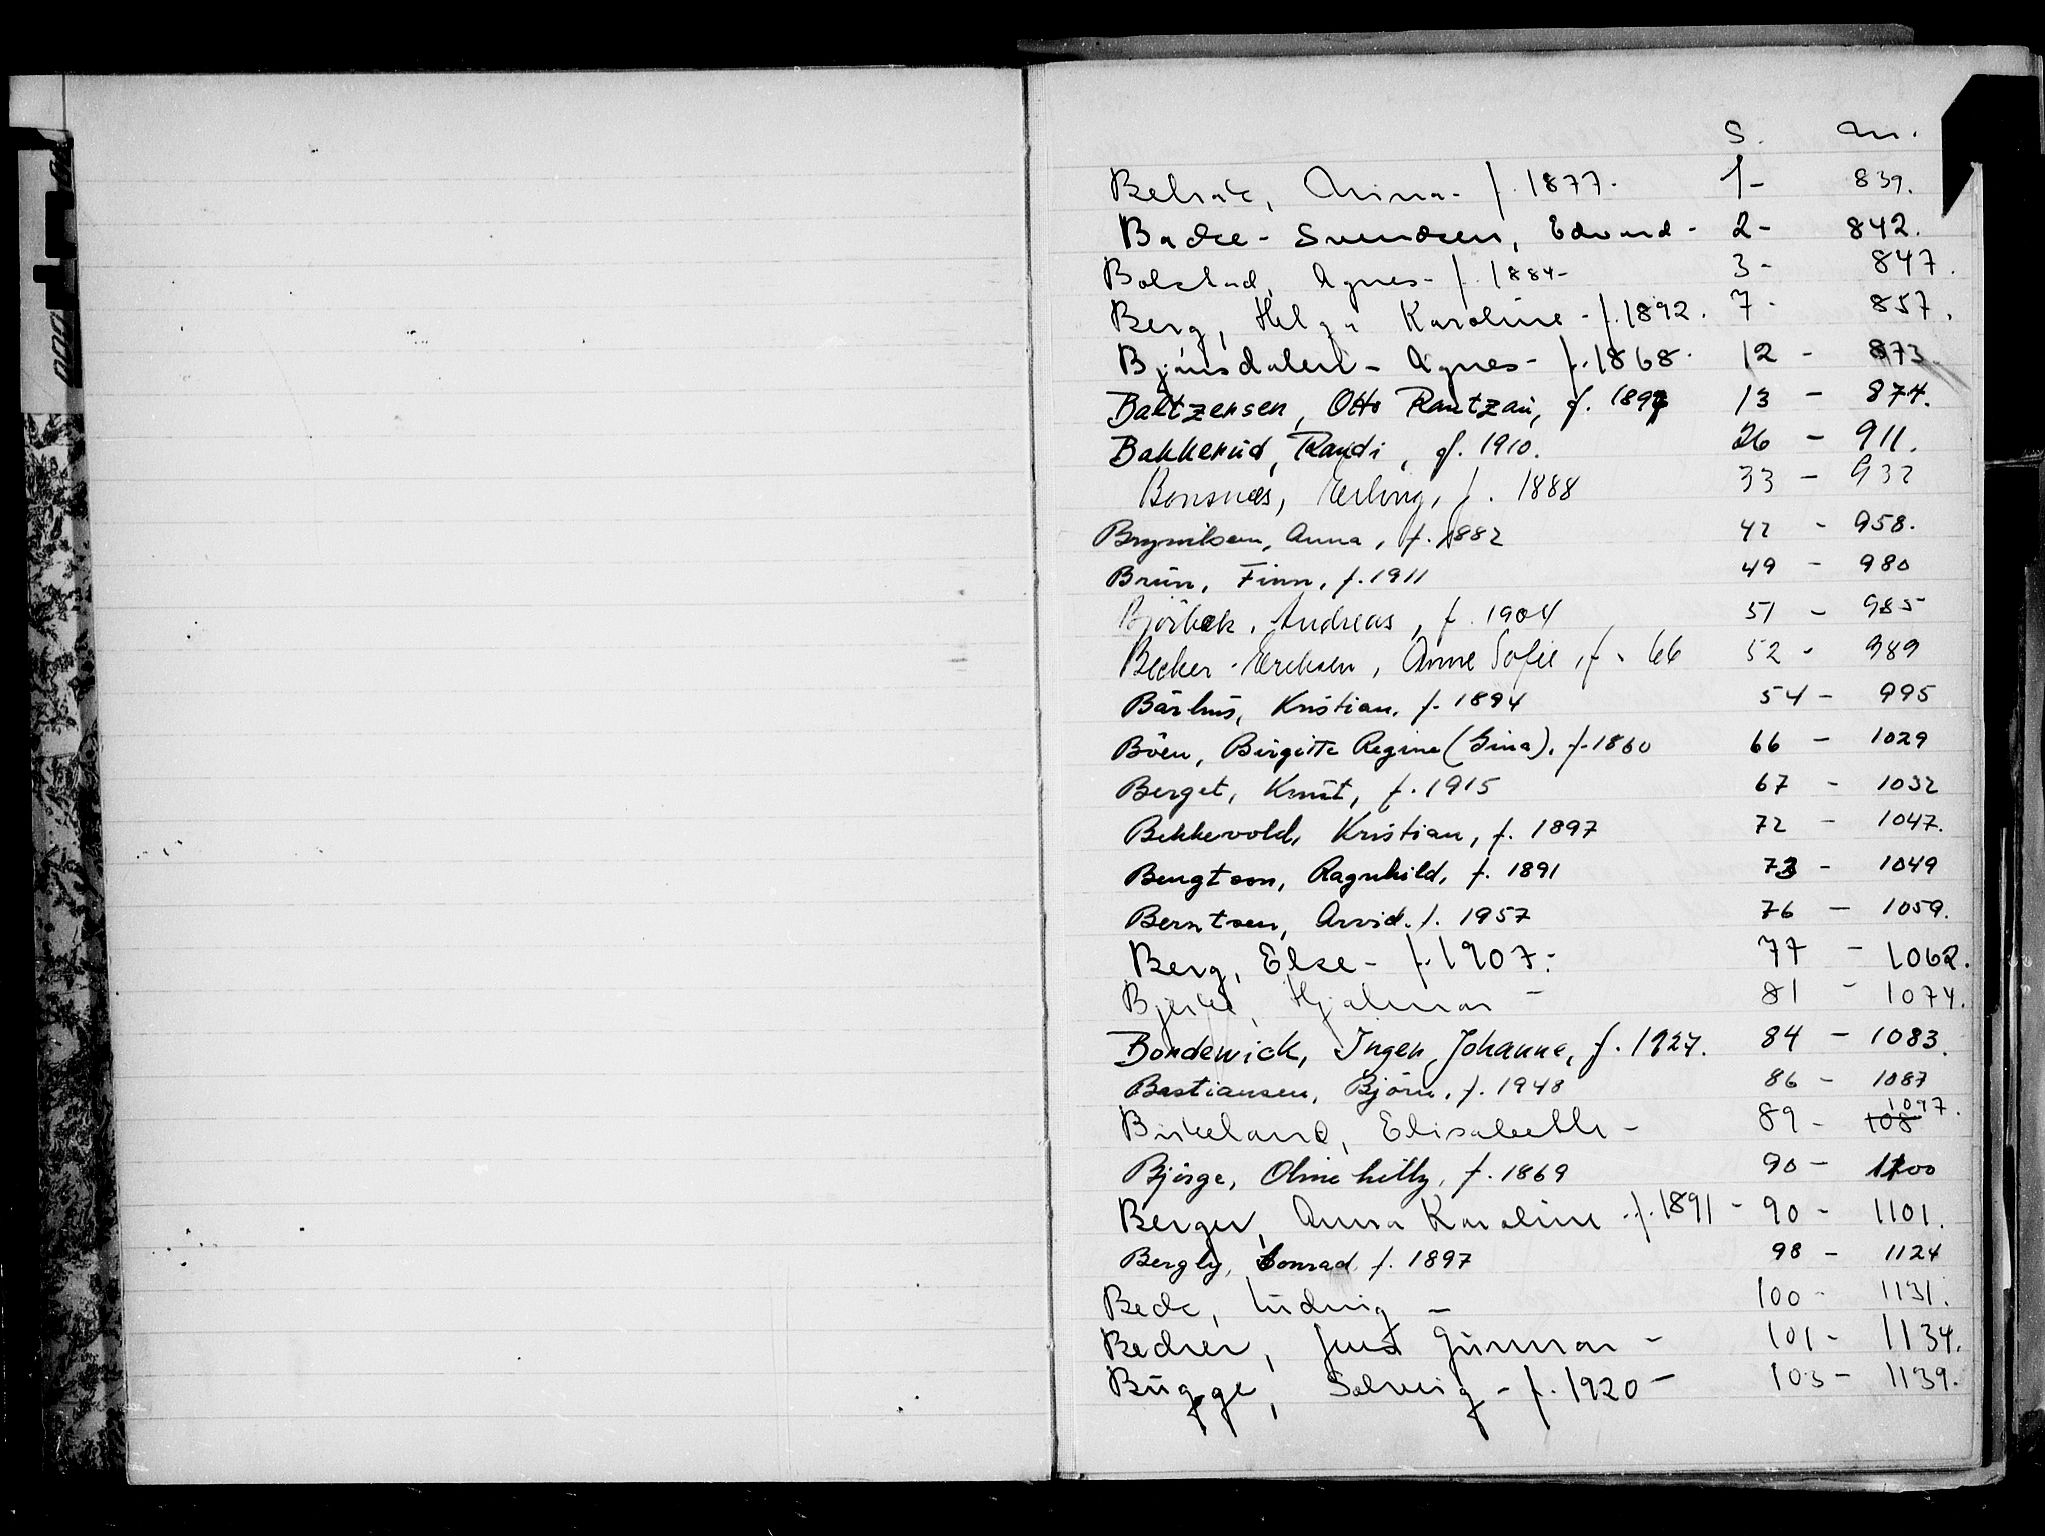 S. nr.
Belsvik, Anina - f. 1877. 1- 839.
Backe - Svendsen, Edvard - 2- 842.
Bolstad, Agnes - f. 1884 - 3- 847.
Berg, Helga Karoline - f. 1892. 7- 857.
Bjønsdalen - Agnes - f. 1868. 12 - 873
Baltzersen, Otto Rantzau, f. 1897 13 - 874.
Bakkerud, Randi, f. 1910. 26 - 911.
Bonsnæs, Erling, f. 1888 33 - 932
Brynilsen, Anna, f. 1882 42 - 958.
Brun, Finn, f. 1911 49 - 980
Björbæk, Andreas, f. 1904 51 - 985
Becker-Eriksen, Anne Sofie, f. 66 52 - 989
Bärhus, Kristian, f. 1894 54 - 995
Böen, Birgitte Regine (Gina), f. 1860 66 - 1029
Berget, Knut, f. 1915 67 - 1032
Bekkevold, Kristian, f. 1897 72 - 1047.
Bengtson, Ragnhild, f. 1891 73 - 1049
Berntsen, Arvid. f. 1957 76 - 1059.
Berg, Else - f. 1907. 77 - 1062.
Bjerke, Hjalmar - 81 - 1074.
Bondewick, Inger Johanne, f. 1927. 84 - 1083.
Bastiansen, Björn, f. 1948 86 - 1087
Birkeland, Elisabeth - 89 - 108 1097.
Björge, Oline Lilly, f. 1869 90 - 1100
Berger, Anna Karoline - f. 1891 - 90 - 1101.
Bergly, Conrad f. 1897 98 - 1124
Beck, Ludvig - 100 - 1131.
Becher, Jens Gunnar - 101 - 1134.
Bugge, Solveig - f. 1920 - 103 - 1139.